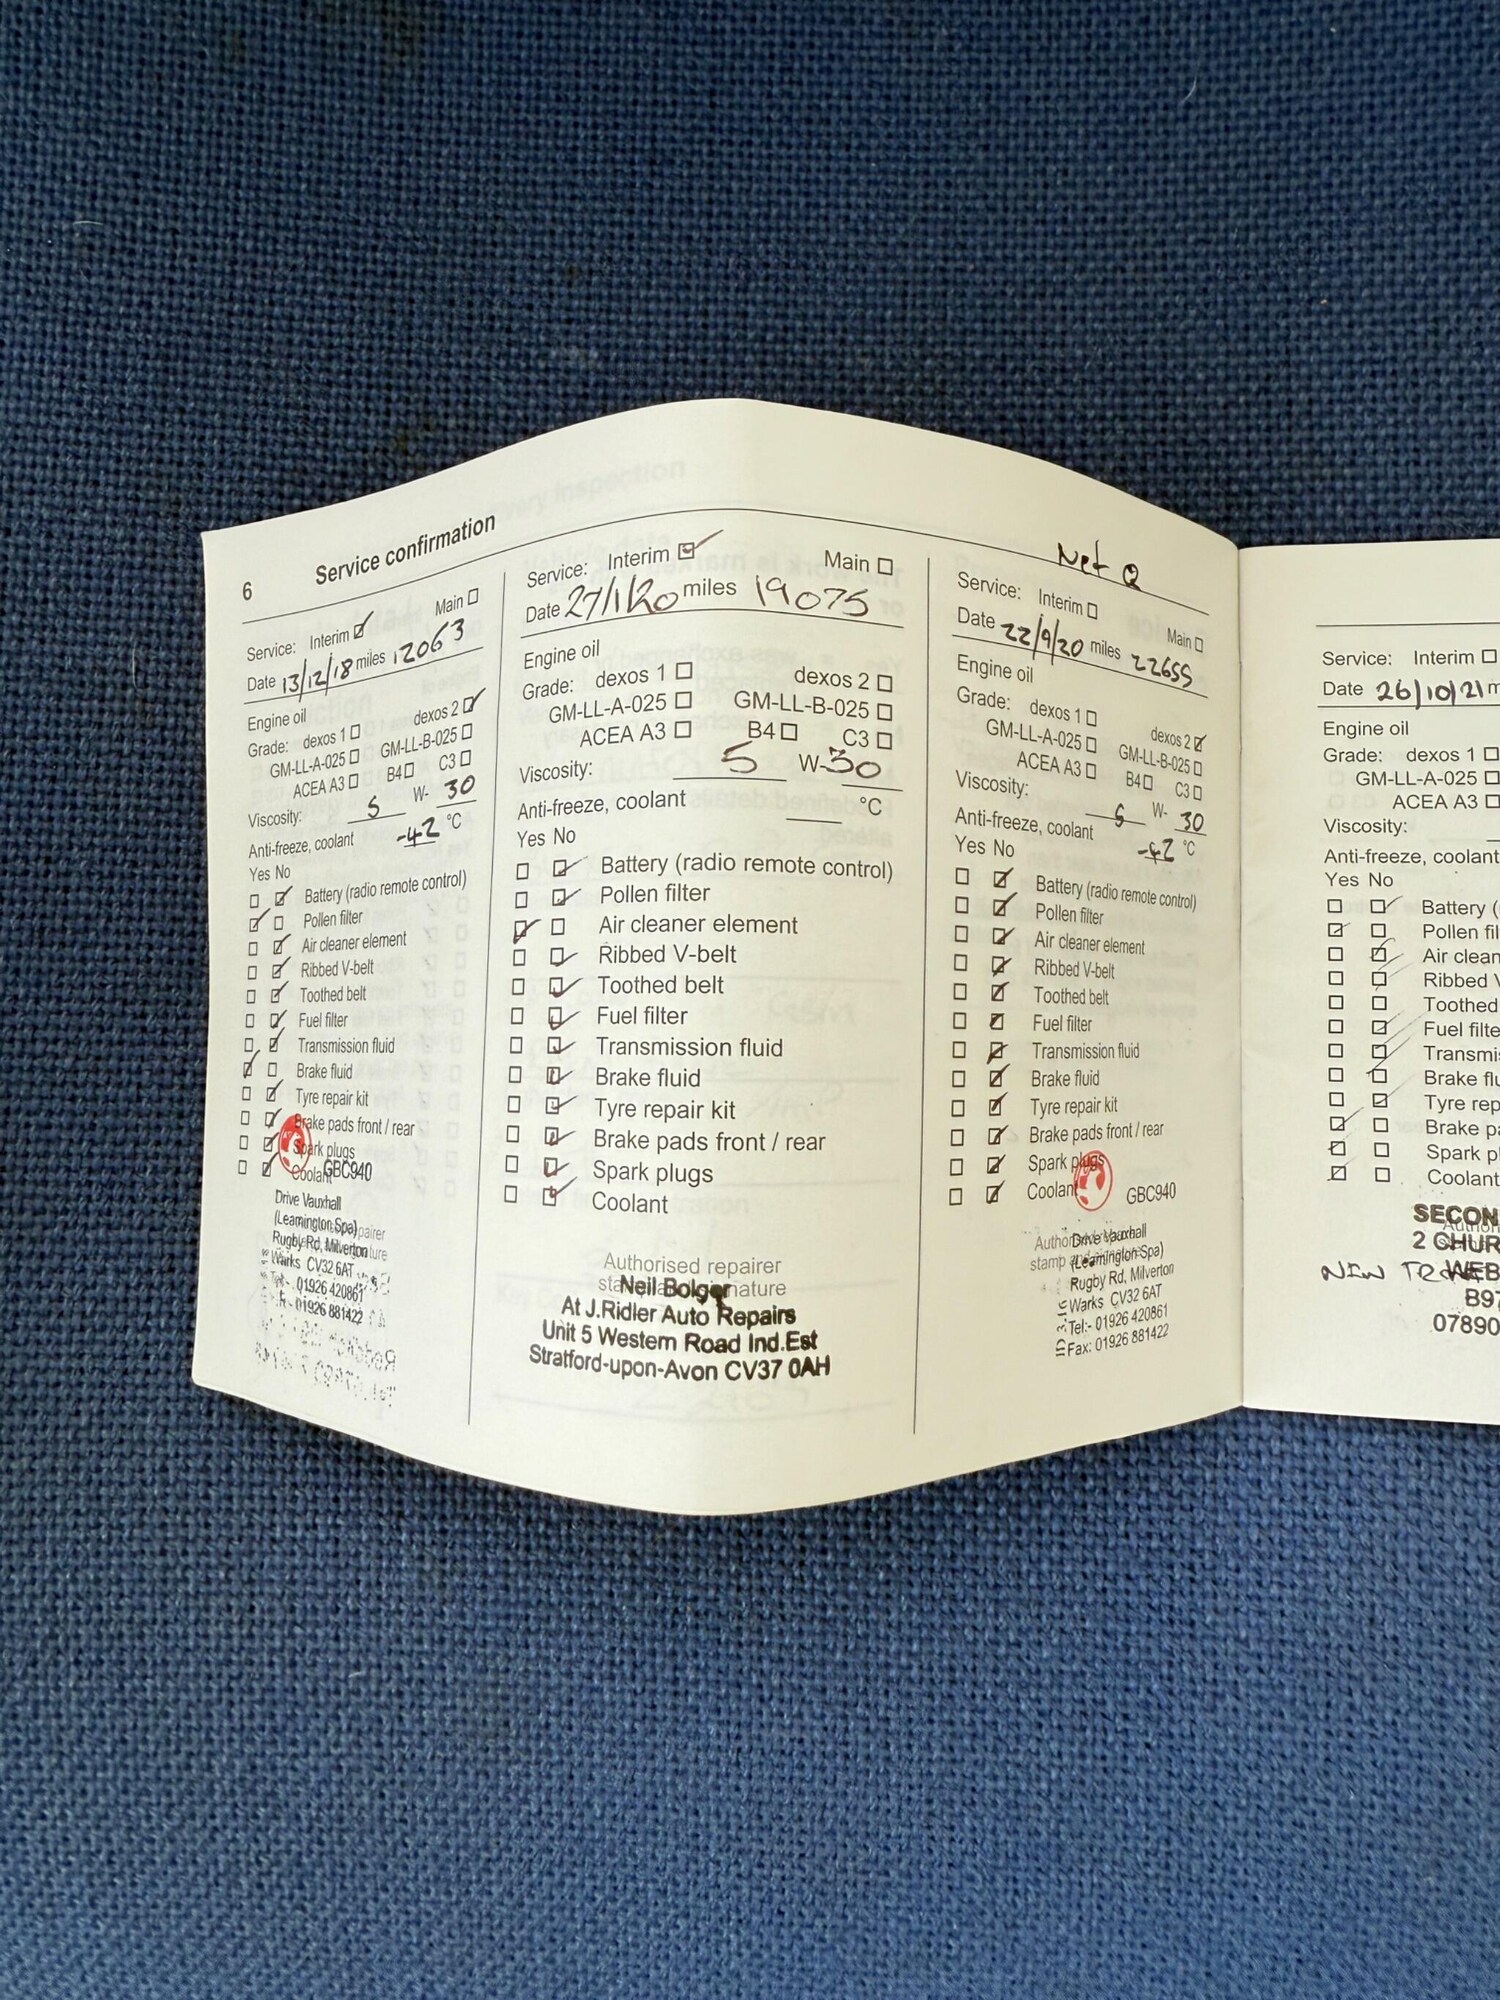 6 Service confirmation
Service: Interim ☑ Main ☐
Date 13/12/18 miles 12063
Engine oil
Grade: dexos 1 ☐ dexos 2 ☑
GM-LL-A-025 ☐ GM-LL-B-025 ☐
ACEA A3 ☐ B4 ☐ C3 ☐
Viscosity: 5 W- 30
Anti-freeze, coolant -42 °C
Yes No
☐ ☑ Battery (radio remote control)
☑ ☐ Pollen filter
☐ ☑ Air cleaner element
☐ ☑ Ribbed V-belt
☐ ☑ Toothed belt
☐ ☑ Fuel filter
☐ ☑ Transmission fluid
☑ ☐ Brake fluid
☐ ☑ Tyre repair kit
☐ ☑ Brake pads front / rear
☐ ☑ Spark plugs
☐ ☑ Coolant
GBC940
Drive Vauxhall
(Leamington Spa)
Rugby Rd, Milverton
Warks CV32 6AT
Tel:- 01926 420861
01926 881422
Service: Interim ☑ Main ☐
Date 27/1/20 miles 19075
Engine oil
Grade: dexos 1 ☐ dexos 2 ☐
GM-LL-A-025 ☐ GM-LL-B-025 ☐
ACEA A3 ☐ B4 ☐ C3 ☐
Viscosity: 5 W-30
Anti-freeze, coolant °C
Yes No
☐ ☑ Battery (radio remote control)
☐ ☑ Pollen filter
☑ ☐ Air cleaner element
☐ ☑ Ribbed V-belt
☐ ☑ Toothed belt
☐ ☑ Fuel filter
☐ ☑ Transmission fluid
☐ ☑ Brake fluid
☐ ☑ Tyre repair kit
☐ ☑ Brake pads front / rear
☐ ☑ Spark plugs
☐ ☑ Coolant
Authorised repairer
Neil Bolger
At J.Ridler Auto Repairs
Unit 5 Western Road Ind.Est
Stratford-upon-Avon CV37 0AH
Service: Interim ☐ Main ☐
Date 22/9/20 miles 22655
Engine oil
Grade: dexos 1 ☐ dexos 2 ☑
GM-LL-A-025 ☐ GM-LL-B-025 ☐
ACEA A3 ☐ B4 ☐ C3 ☐
Viscosity: 5 W- 30
Anti-freeze, coolant -42 °C
Yes No
☐ ☑ Battery (radio remote control)
☐ ☑ Pollen filter
☐ ☑ Air cleaner element
☐ ☑ Ribbed V-belt
☐ ☑ Toothed belt
☐ ☑ Fuel filter
☐ ☑ Transmission fluid
☐ ☑ Brake fluid
☐ ☑ Tyre repair kit
☐ ☑ Brake pads front / rear
☐ ☑ Spark plugs
☐ ☑ Coolant
GBC940
Drive Vauxhall
(Leamington Spa)
Rugby Rd, Milverton
Warks CV32 6AT
Tel:- 01926 420861
Fax: 01926 881422
Service: Interim ☐
Date 26/10/21 m
Engine oil
Grade: dexos 1 ☐
GM-LL-A-025 ☐
ACEA A3 ☐
Viscosity:
Anti-freeze, coolant
Yes No
☐ ☑ Battery (
☑ ☐ Pollen fil
☐ ☑ Air clean
☐ ☐ Ribbed V
☐ ☐ Toothed
☐ ☑ Fuel filte
☐ ☑ Transmis
☐ ☐ Brake flu
☐ ☑ Tyre rep
☑ ☐ Brake pa
☑ ☐ Spark pl
☑ ☐ Coolant
SECON
2 CHUR
WEB
NEW
B97
07890